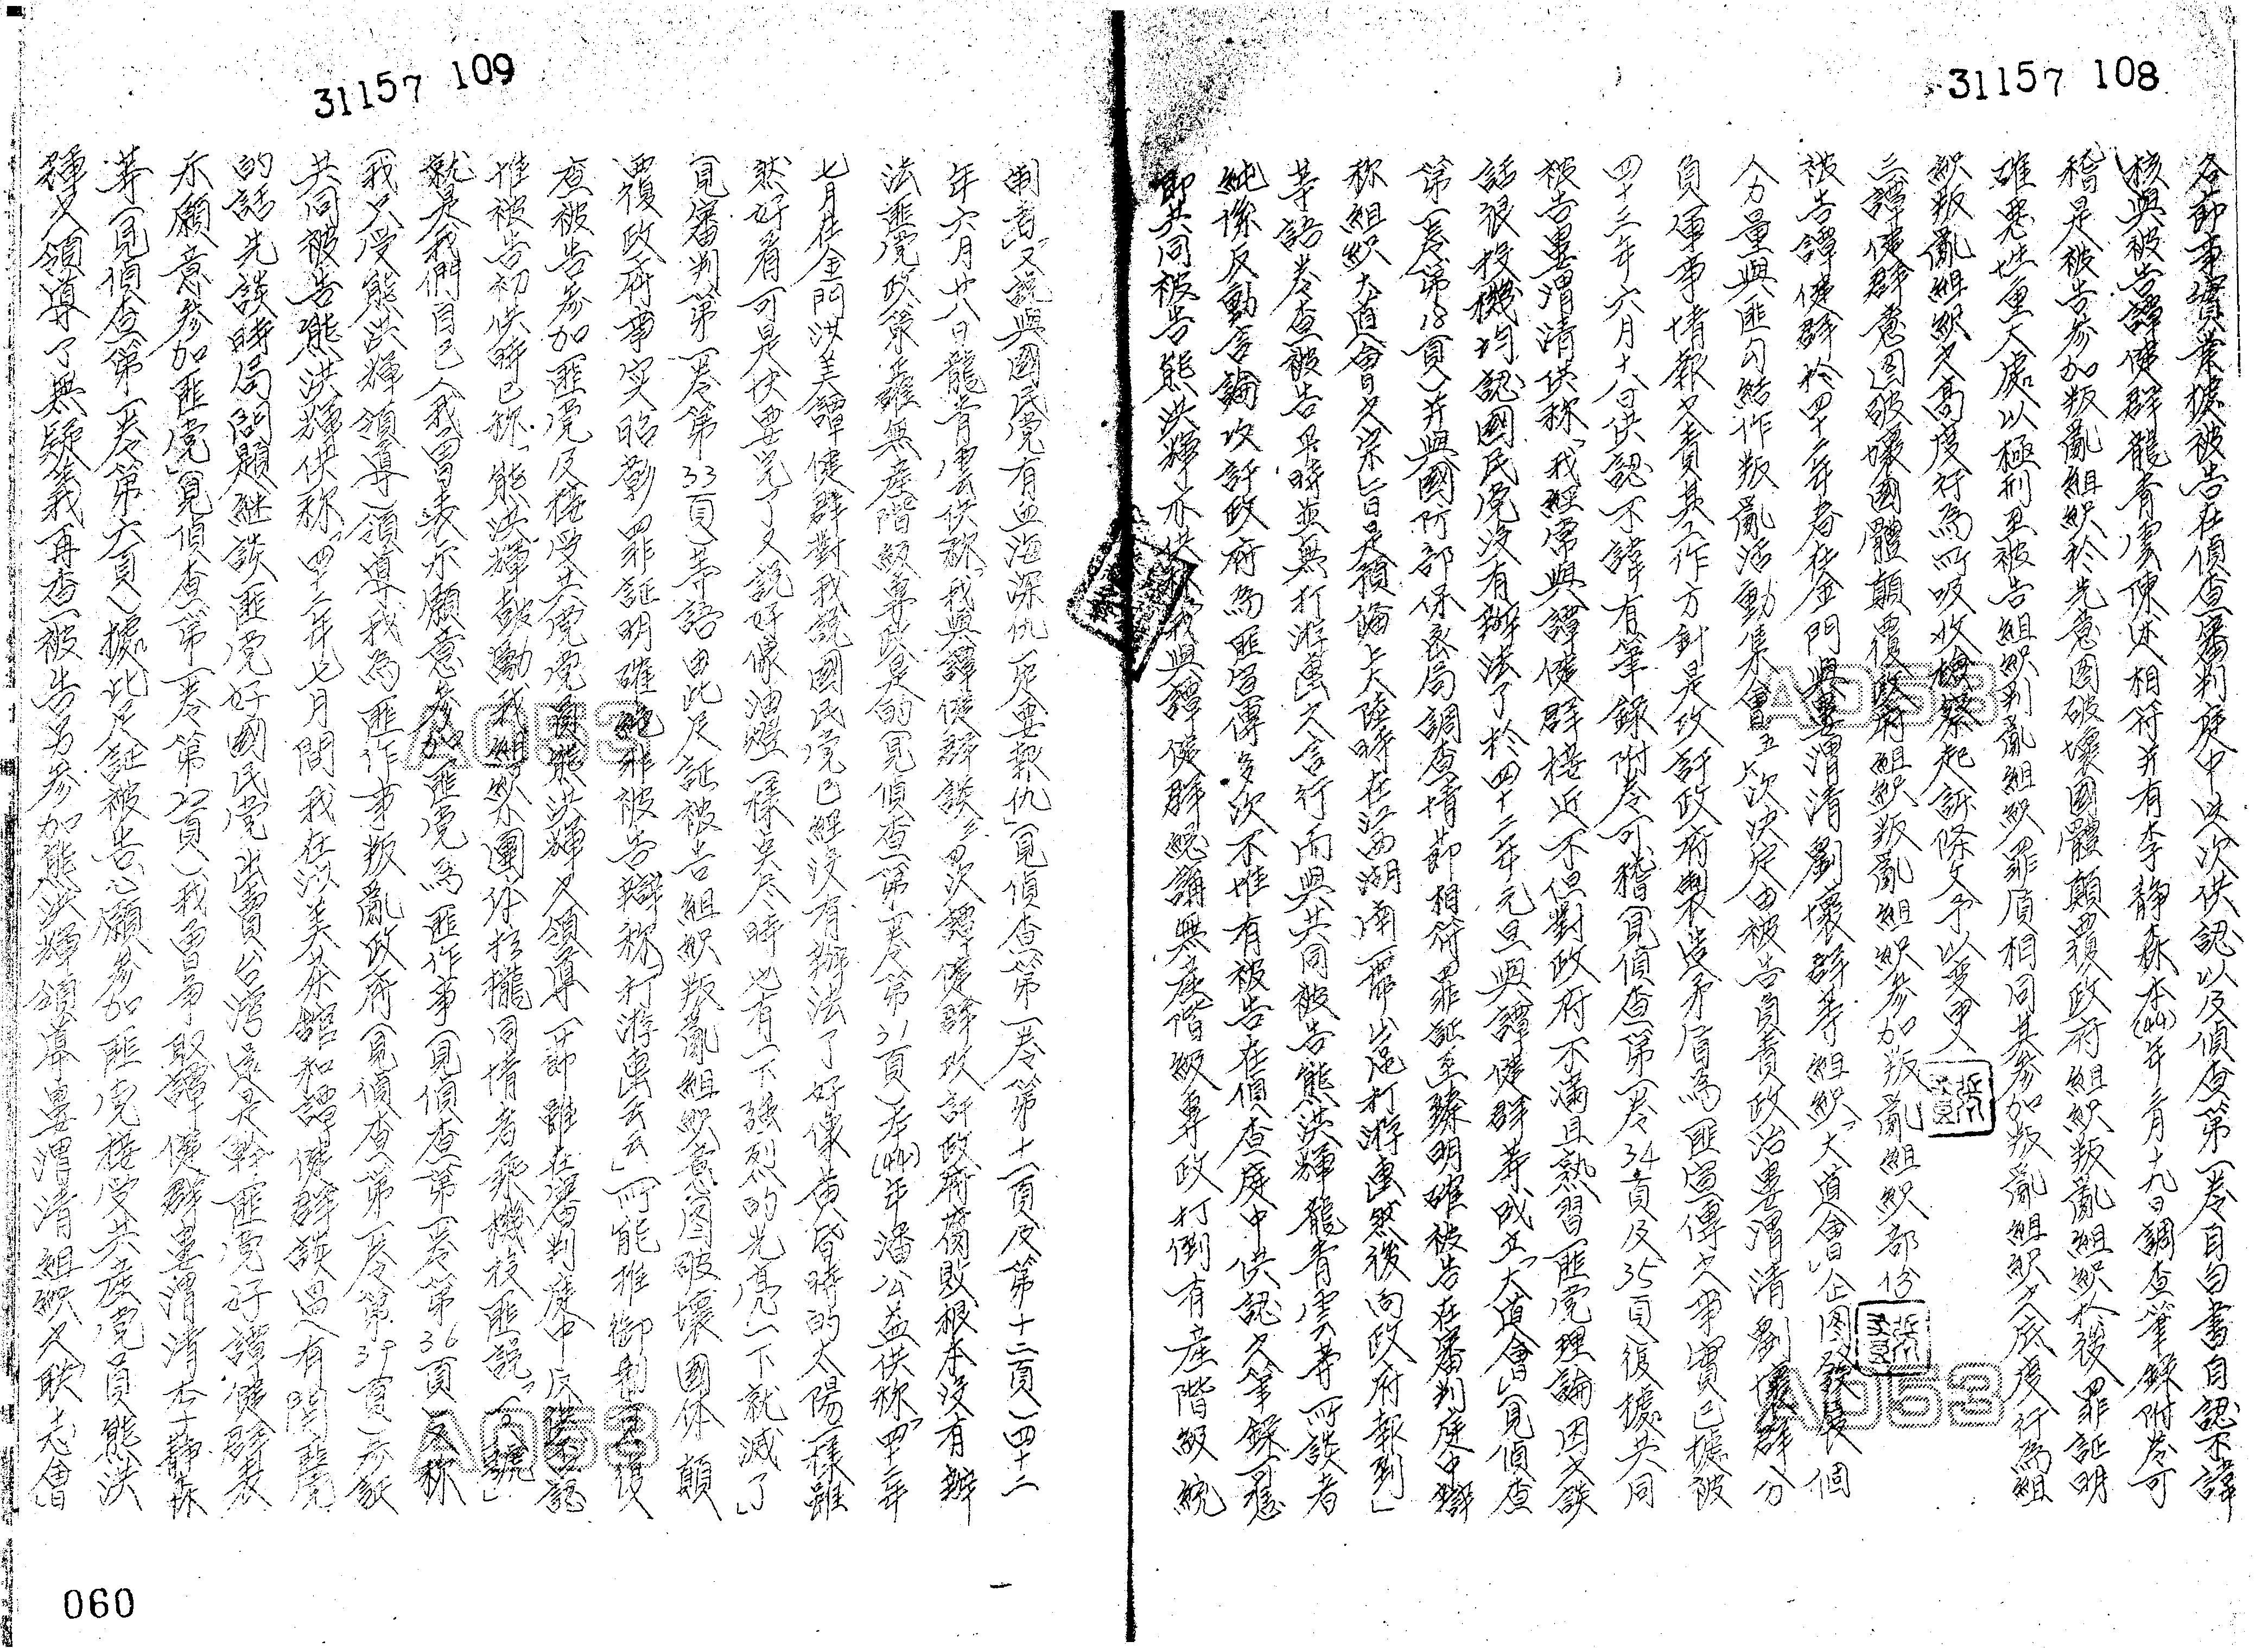 31157 108
各節事實業據被告在偵查審判庭中迭次供認以及偵查第一卷自白書自認不諱
核與被告譚健群龍青雲陳述相符并有李靜森本(44)年三月十九日調查筆錄附卷可
稽是被告參加叛亂組織於先意圖破壞國體顛覆政府組織叛亂組織於後罪証明
確惡性重大處以極刑至被告組織叛亂組織罪質相同其參加叛亂組織之底度行為組
織叛亂組織之高度行為所吸收檢察起訴條文予以變更
二譚健群意圖破壞國體顛覆政府組織叛亂組織參加叛亂組織部份
被告譚健群於四十二年春在金門與婁渭清劉壞群等組織「大道會」企图發展個
人力量與匪勾結作叛亂活動集會五六次決定由被告負責政治婁渭清劉壞群分
負軍事情報之責其工作方針是攻訐政府製造矛盾為匪宣傳之事實已據被
四十三年六月十八日供認不諱有筆錄附卷可稽(見偵查第一卷34頁及35頁)復據共同
被告婁渭清供称「我經常與譚健群接近不但對政府不滿且熟習匪党理論因之談
話很投機均認國民党沒有辦法了於四十二年元旦與譚健群等成立「大道會」(見偵查
第一卷第18頁)并與國防部保密局調查情節相符罪証至臻明確被告在審判庭中辯
称組織大道會之宗旨是預備上大陸時在湖南一帶出沒打游擊然後向政府報到」
等語卷查被告
純係反動言論攻訐政府為匪宣傳多次不惟有被告在偵查庭中供認之筆錄可
即共同被告熊洪輝亦供称「我與譚健群總講無產階級專政打倒有產階級統
31157 109
制者」又說與國民党有血海深仇死要報仇」(見偵查第一卷第十一頁及第十二頁)四十二
年六月廿八日龍青雲供称「我與譚健群談二三次譚健群攻訐政府腐敗根本沒有辦
法匪党政策正確無產階級專政是的(見偵查第一卷第31頁)本(44)年潘公益供称「四十二年
七月在金門洪美譚健群對我說國民党已經沒有辦法了好像黃昏時的太陽一樣雖
然好看可是快要完了又說好像油燈一樣吳尽時也有一下強烈的光亮一下就滅了」
(見審判第一卷第33頁)等語由此足証被告組織叛亂組織意图破壞國体顛
覆政府事实昭彰罪証明確絕非被告辯称「打游擊云云」所能推卸
查被告參加匪党及接受共党党員熊洪輝之領導一節雖在審判庭中反供不認
惟被告初供時已称「熊洪輝鼓動我組織小團体拉攏同情者乘機投匪說
就是我們自己人我曾表示願意參加匪党為匪作事(見偵查第一卷第36頁)又称
「我只受熊洪輝領導」領導我為匪作事叛亂政府(見偵查第一卷第39頁)
共同被告熊洪輝供称「四十二年七月間我在洪美茶館和譚健群談過有關匪党
的話先談時局問題继談匪党好國民党出賣台湾還是幹匪党好譚健群表
示願意參加匪党」(見偵查第一卷第22頁)「我曾爭取譚健群婁渭清李靜森
等(見偵查第一卷第六頁)據此足証被告志願參加匪党接受共產党員熊洪
輝之領導了無疑義再查被告另參加熊洪輝領導婁渭清組織之「联志會」
060
A053
A053
A053
A053